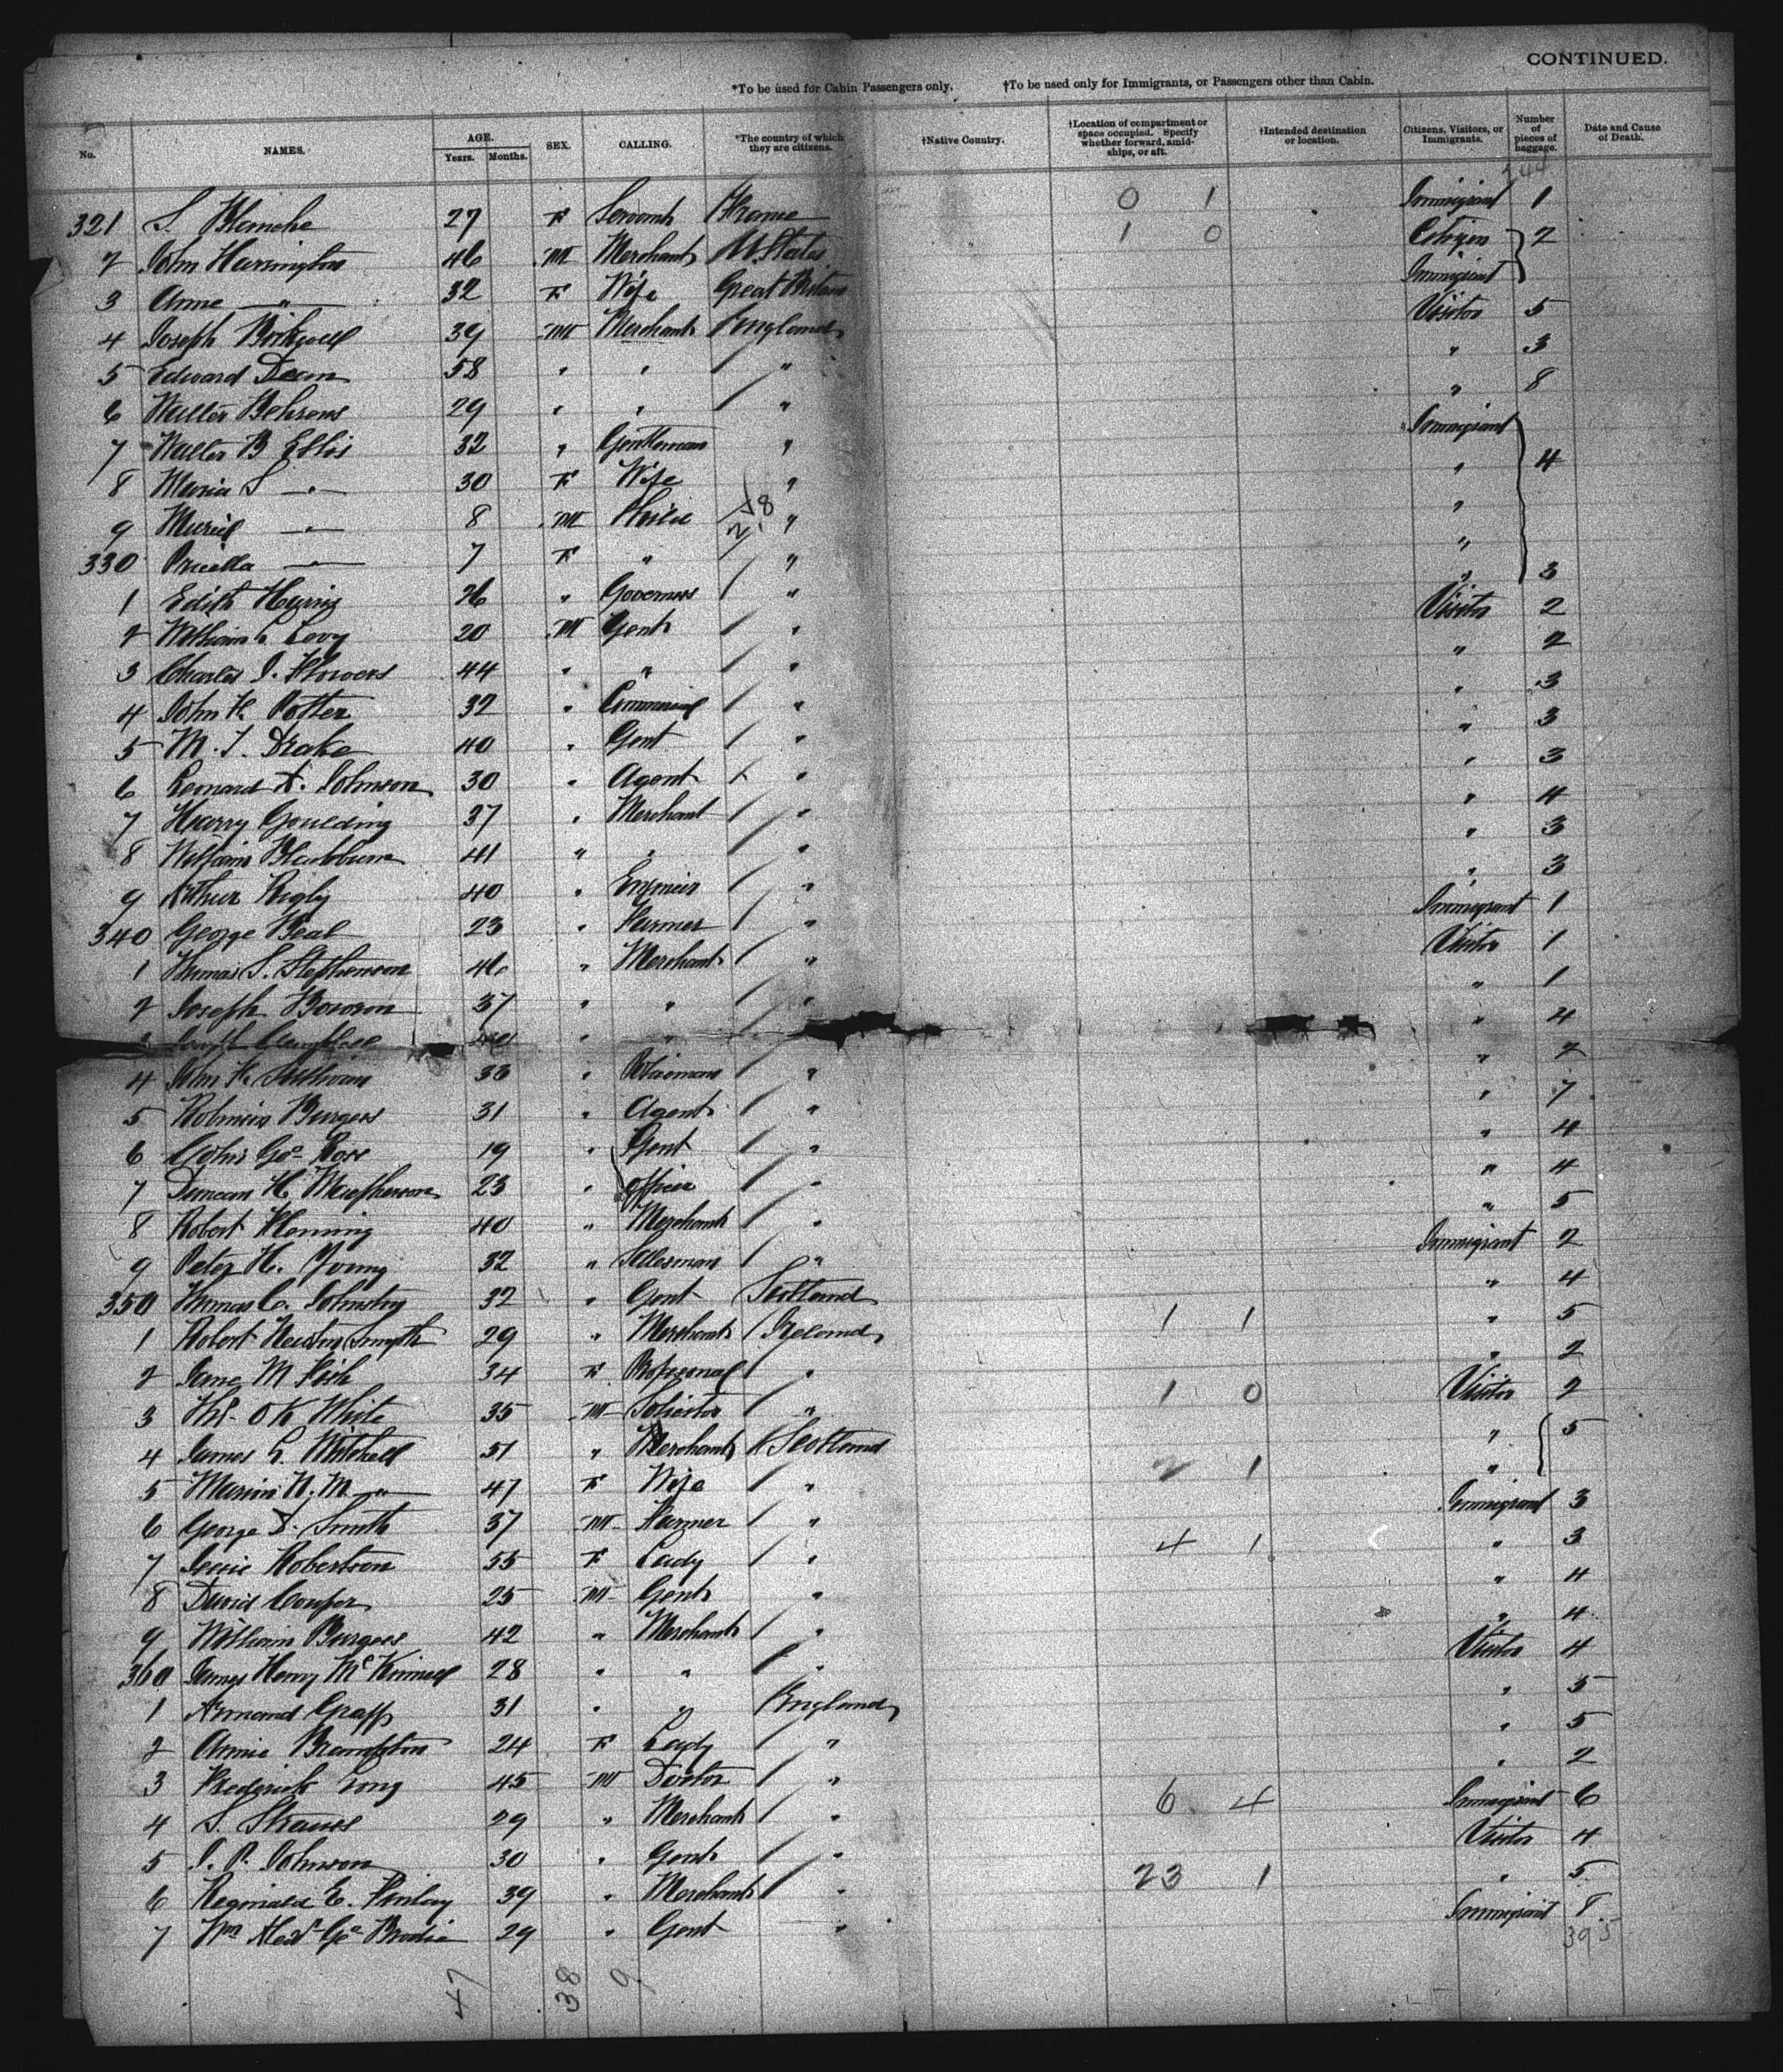 CONTINUED.
*To be used for Cabin Passengers only. †To be used only for Immigrants, or Passengers other than Cabin.
No. NAMES. AGE. Years. Months. SEX. CALLING. *The country of which they are citizens. †Native Country. †Location of compartment or space occupied. Specify whether forward, amidships, or aft. †Intended destination or location. Citizens, Visitors, or Immigrants. Number of pieces of baggage. Date and Cause of Death.
244
321 S. Blanche 27 F Servant France 0 1 Immigrant 1
2 John Harrington 46 M Merchant U. States 1 0 Citizen 2
3 Anne — " — 32 F Wife Great Britain Immigrant
4 Joseph 39 M Merchant England Visitor 5
5 Edward Dean 58 " " / " " 3
6 Walter Behrens 29 " " / " " 8
7 Walter B Ellis 32 " Gentleman " Immigrant 4
8 Maria S — " — 30 F Wife " "
9 Muriel — " — 8 M Child 258 " "
330 — " — 7 F " " "
1 Edith 26 " Governess / " " 3
2 William L Levy 20 M Gent / " Visitor 2
3 Charles J. Flowers 44 " " / " " 2
4 John H. Potter 32 " Commercial / " " 3
5 M. J. Drake 40 " Gent / " " 3
6 Leonard Johnson 30 " Agent " " 3
7 Harry Goulding 37 " Merchant / " " 4
8 William Blackburn 41 " " / " " 3
9 Arthur Rigby 40 " Engineer / " " 3
340 George Beal 23 " Farmer / " Immigrant 1
1 Thomas S. Stephenson 46 " Merchant / " Visitor 1
2 Joseph Bowron 37 " " / " " 1
3 Joseph Campbell 40 " " " 4
4 John F. Sullivan 33 " / " " 2
5 Burgess 31 " Agent / " " 7
6 John Geo Ross 19 " Gent / " " 4
7 Duncan H Macpherson 23 " Officer / " " 4
8 Robert Fleming 40 " Merchant / " " 5
9 Peter H. Young 32 " Salesman / " Immigrant 2
350 Thomas C. Johnston 32 " Gent Scotland 1 1 " 4
1 Robert Smyth 29 " Merchant Ireland " 5
2 Jane M Fish 34 F Professional / " " 2
3 White 35 M Solicitor / " 1 0 Visitor 2
4 James G. Mitchell 51 " Merchant Scotland " 5
5 Marion N. M — " — 47 F Wife / " 2 1 "
6 George D. Smith 37 M Farmer / " Immigrant 3
7 Jessie Robertson 55 F Lady / " 4 1 " 3
8 David Couper 25 M Gent " " 4
9 William Burgess 42 " Merchant / " " 4
360 James Henry McKinnell 28 " " / " Visitor 4
1 Armand Graff 31 " " England " 5
2 Annie Brampton 24 F Lady / " " 5
3 Frederick Long 45 M Doctor / " " 2
4 S. Straus 29 " Merchant / " 6 4 Immigrant 6
5 J. P. Johnson 30 " Gent / " Visitor 4
6 Reginald E. Finlay 39 " Merchant / " 23 1 " 5
7 Wm Alexr Geo Brodie 29 " Gent " Immigrant 8
395
47 38 9